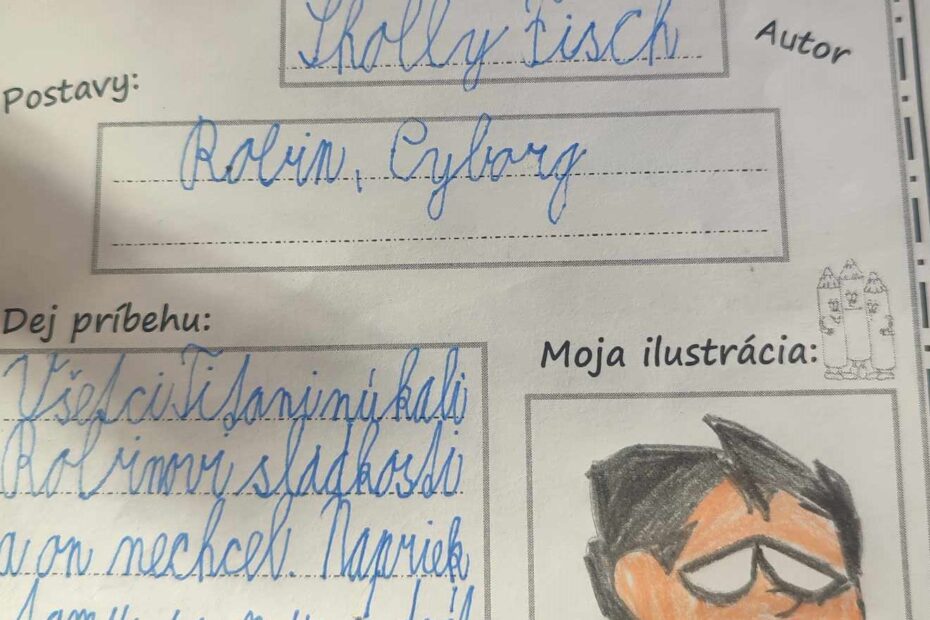 Sholly Fisch
Autor
Postavy:
Robin, Cyborg
Dej príbehu:
Moja ilustrácia:
Všetci Titani núkali
Robinovi sladkosti
a on nechcel. Napriek